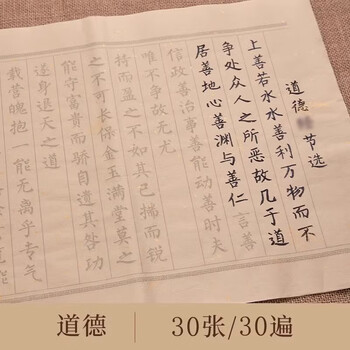 道德节选
上善若水水善利万物而不
争处众人之所恶故几于道
居善地心善渊与善仁言善
信政善治事善能动善时夫
唯不争故无尤
持而盈之不如其已揣而锐
之不可长保金玉满堂莫之
能守富贵而骄自遗其咎功
遂身退天之道
营魄抱一能无离乎专气
道德
30张/30遍